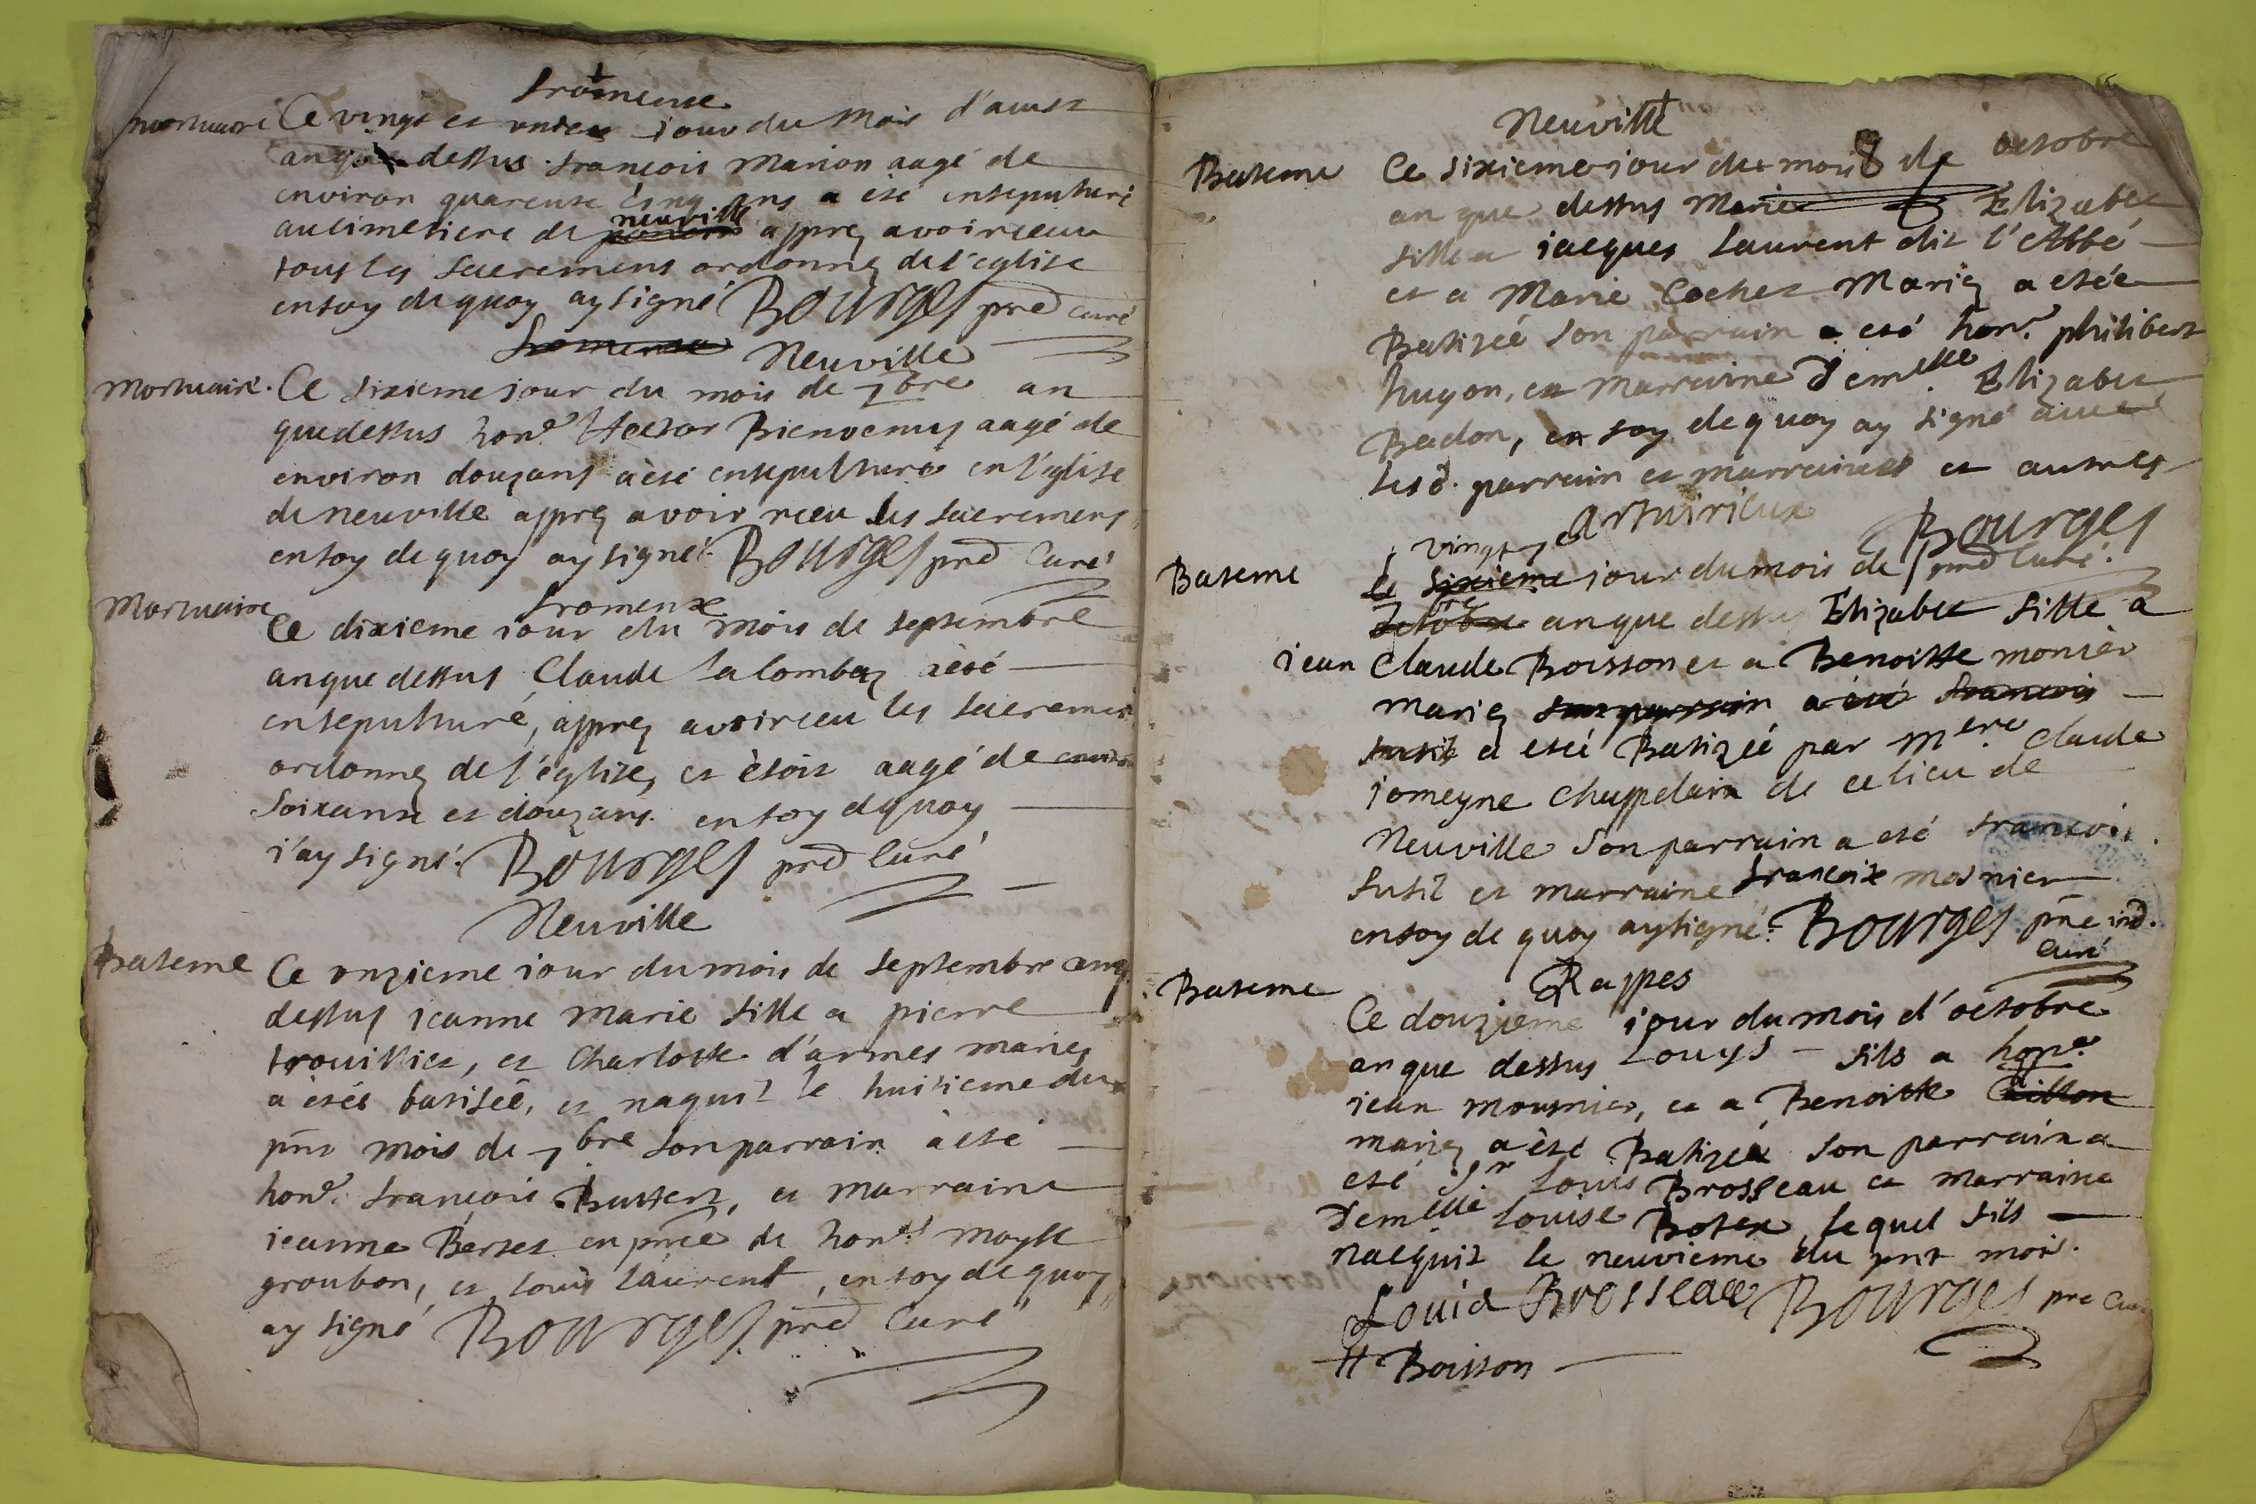 fromente
mortuaire Ce vingt et unieme jour du mois d'aust
an que dessus françois Marion aagé de
environ quarente cinq ans a été ensepulturé
au cimetiere de neuville apprez avoir receu
tous les sacremens ordonnez de l'eglise
en foy de quoy ay signé Bourges pred curé
fromente Neuville
Mortuaire. Ce sixieme jour du mois de 7bre an
que dessus hone. Hector Bienvenus aagé de
environ douzans a été ensepulturé en l'eglise
de neuville apprez avoir receu les sacremens
en foy de quoy ay signé Bourges pred Curé
fromente
Mortuaire Ce dixieme jour du mois de septembre
an que dessus Claude la lombez a été
ensepulturé, apprez avoir receu les sacremens
ordonnez de l'église, et étoit aagé de environ
soixante et douzans en foy dquoy
j'ay signé. Bourges pred Curé
Neuville
Bateme Ce onzieme jour du mois de septembre an q
dessus jeanne Marie fille a pierre
trouillier, et Charlotte d'armes mariez
a étéé batiséé, et naquit le huitieme du
pñt mois de 7bre son parrain a été
hone. françois Buffert, et marraine
jeanne Berset en pñce de hones moyse
groubon, et louis laurent, en foy de quoy
ay signé Bourges pred Curé
Neuville
Bateme Ce sixieme jour du mois de octobre
an que dessus Marie Elizabet
fille a jacques laurent dit l'Abbé
et a Marie Cochet Mariez a etée
Batizéé son parrain a eté hone. philibert
huyon, et marraine Demelle Elizabet
Badon, en foy de quoy ay signé avec
lesd. parrain et marraine et autres
Bourges
pred Curé.
vingt 7e
Bateme le sixieme jour du mois de
octobre an que dessus Elizabet fille a
jean Claude Boisson et a Benoitte monier
mariez son parrain a été françois
sutil a etéé Batizéé par mere Claude
jomeyne chappelain de ce lieu de
Neuville son parrain a eté françois
sutil et marraine françoise mosnier
en foy de quoy ay signé. Bourges pñe ind.
curé
Rappes
Bateme Ce douzieme jour du mois d'octobre
an que dessus Louys fils a hone.
jean mousnier, et a Benoitte Caillon
mariez a été Batizéé son parrain a
eté Sr Louis Brosseau et marraine
Demelle louise Botex lequel fils
nacquit le neuvieme du pnt mois.
Louis Brosseau Bourges pre Curé
H Boisson